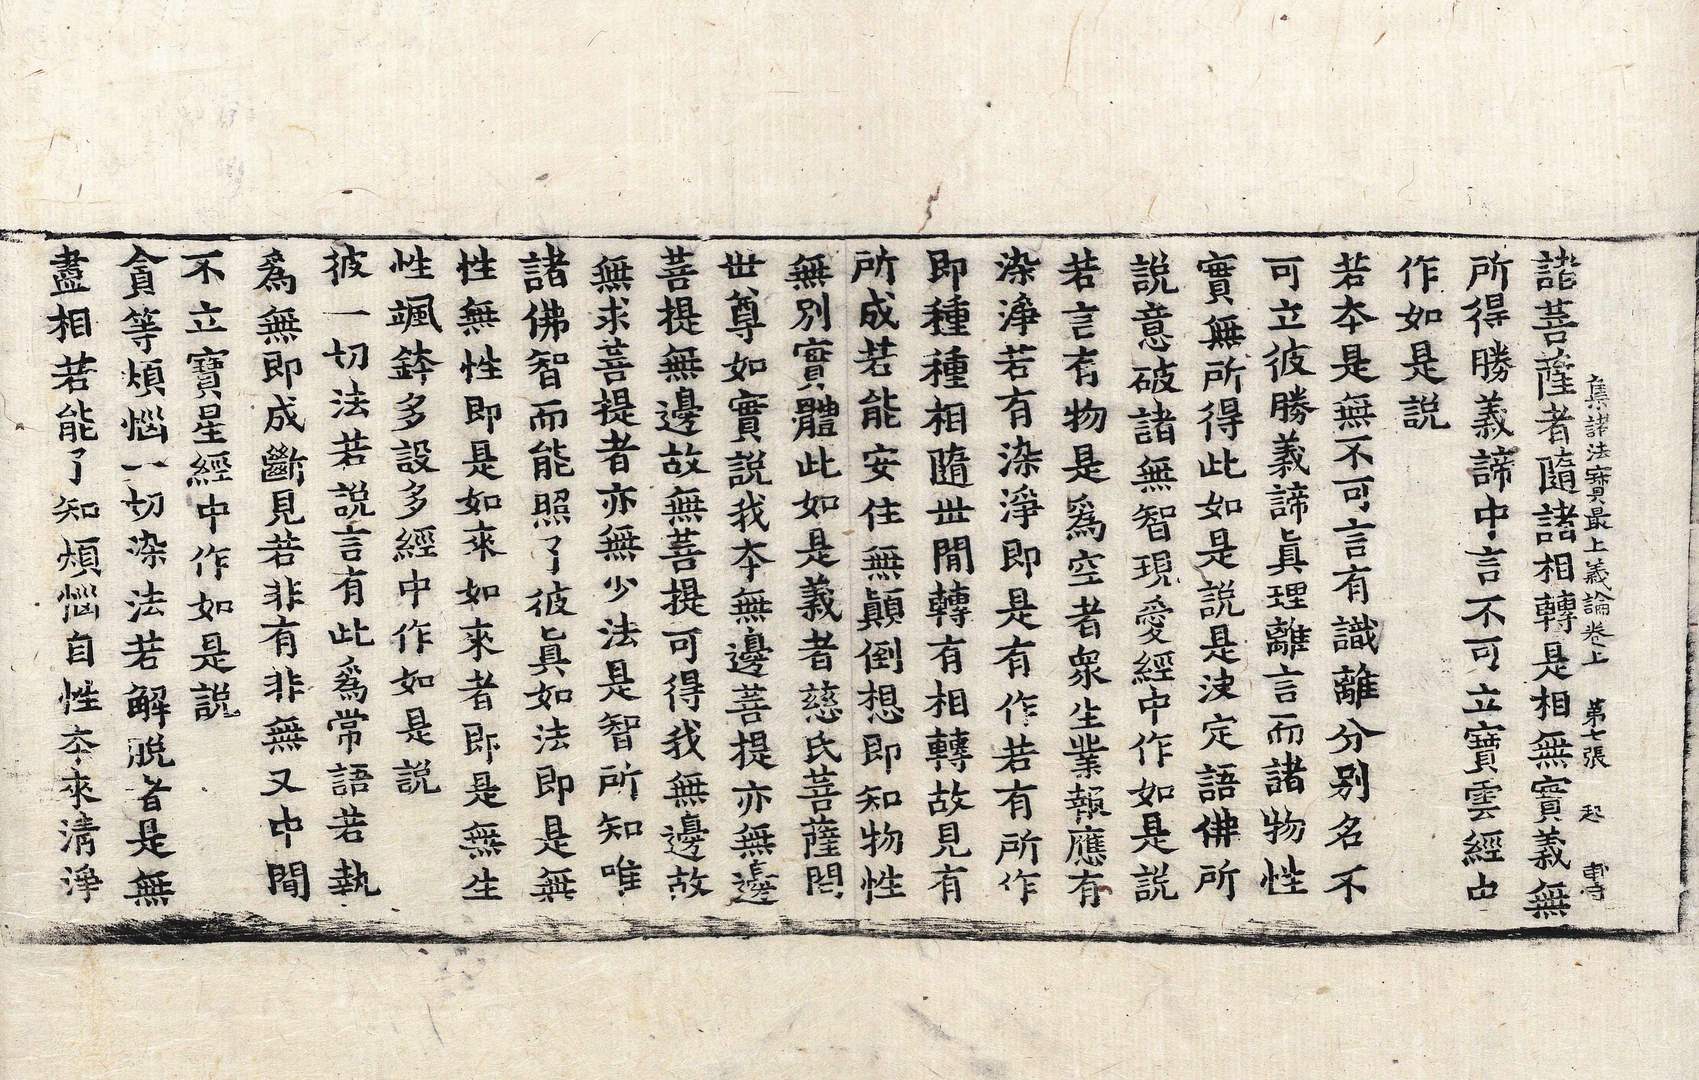 集諸法寶最上義論卷上　第七張　起
諸菩薩者隨諸相轉是相無實義無
所得勝義諦中言不可立寶雲經中
作如是說
若本是無不可言有識離分別名不
可立彼勝義諦眞理離言而諸物性
實無所得此如是說是決定語佛所
說意破諸無智現愛經中作如是說
若言有物是爲空者衆生業報應有
染淨若有染淨即是有作若有所作
即種種相隨世間轉有相轉故見有
所成若能安住無顚倒想即知物性
無別實體此如是義者慈氏菩薩問
世尊如實說我本無邊菩提亦無邊
菩提無邊故無菩提可得我無邊故
無求菩提者亦無少法是智所知唯
諸佛智而能照了彼眞如法即是無
性無性即是如來如來者即是無生
性颯鉢多設多經中作如是說
彼一切法若說言有此爲常語若執
爲無即成斷見若非有非無又中間
不立寶星經中作如是說
貪等煩惱一切染法若解脫者是無
盡相若能了知煩惱自性本來清淨